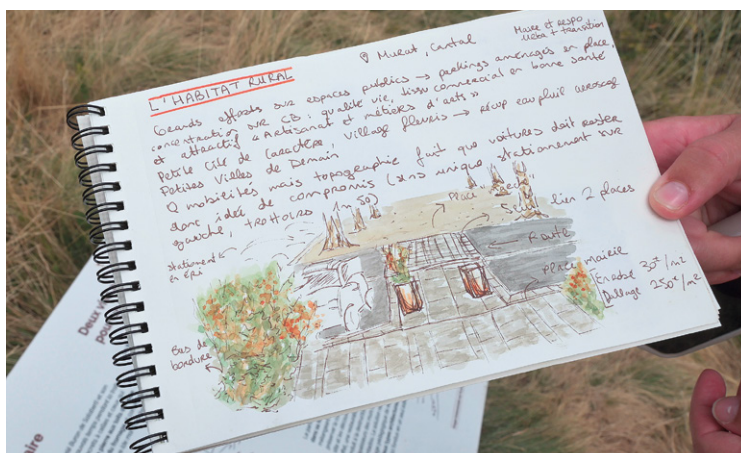 L'HABITAT RURAL
Murat, Cantal
Maire et respo
urba + transition
Grands efforts sur espaces publics → parkings aménagés en place,
concentration sur CB, qualité vie, tissu commercial en bonne santé,
et attractif "Artisanat et métiers d'arts"
Petite Cité de Caractère, village fleuris → récup eau pluie arrosage
Petites Villes de Demain
Q mobilités mais topographie fait que voitures doit rester
donc idée de compromis (sens unique, stationnement sur
gauche, trottoirs 1m50)
stationnemt
en épi
Place
Seuil lien 2 places
Route
Place mairie
Enrobé 30€/m2
Dallage 250€/m2
Bas de
bordure
Deux
aire